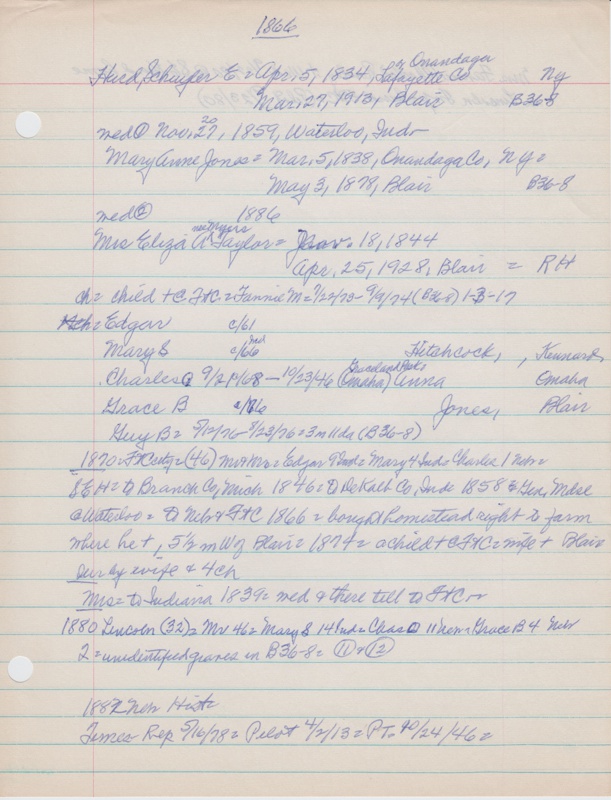 1866
or Onandaga
Hurd, Schuyler E = Apr, 5, 1834, Lafayette Co, Ny
Mar, 27, 1913, Blair B36-8
20
med① Nov, 27, 1859, Waterloo, Ind
Mary Anne Jones = Mar, 5, 1838, Onandaga Co, NY =
May 3, 1878, Blair B36-8
med② 1886
nee Myers
Mrs Eliza A Taylor = Nov. 18, 1844
Apr, 25, 1928, Blair = RH
ch = child + C F+C = Fannie M = 7/22/73 - 9/9/74 (B36-8) 1-3-17
ch = Edgar c/61
Mary S c/66 Ind Hitchcock, , Kennard,
Charles 9/2/68 - 10/23/46 (Omaha) Anna Omaha
Grace B c/76 Jones, Blair
Guy B = 5/12/76 - 8/23/76 = 3m 11da (B36-8)
1870 = F+C city = (46) Mr + Mrs = Edgar 9 Ind = Mary 4 Ind = Charles 1 Neb =
SEH = to Branch Co, Mich 1846 = to DeKalb Co, Ind 1858 & Gen, Mdse
@ Waterloo = to Neb & F+C 1866 = bought homestead right to farm
where he +, 5½ m W of Blair = 1874 = a child + C F+C = wife + Blair
Sur by wife & 4 ch
Mrs = to Indiana 1839 = med & there till to F+C
1880 Lincoln (32) = Mr 46 = Mary S 14 Ind = Chas 11 Neb = Grace B 4 Neb
2 = unidentified graves in B36-8 = ⑪ & ⑫
1882 Neb Hist =
Times Rep 5/16/78 = Pilot 4/2/13 = PT = 10/24/46 =